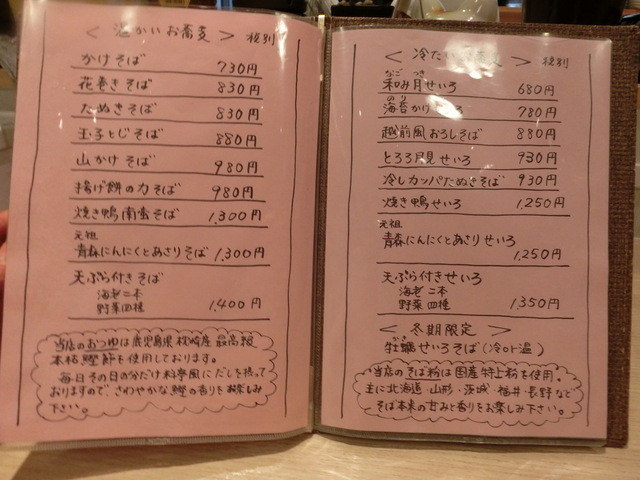 < 温かいお蕎麦 > 税別
かけそば 730円
花巻きそば 830円
たぬきそば 830円
玉子とじそば 880円
山かけそば 980円
揚げ餅の力そば 980円
焼き鴨南蛮そば 1,300円
元祖
青森にんにくとあさりそば 1,300円
天ぷら付きそば
海老二本
野菜四種 1,400円
当店のおつゆは鹿児島県枕崎産最高級
本枯鰹節を使用しております。
毎日その日の分だけ料亭風にだしを捲って
おりますので、さわやかな鰹の香りをお楽しみ
下さい。
< 冷たいお蕎麦 > 税別
なご つき
和み月せいろ 680円
のり
海苔かけせいろ 780円
越前風おろしそば 880円
とろろ月見せいろ 930円
冷しカッパたぬきそば 930円
焼き鴨せいろ 1,250円
元祖
青森にんにくとあさりせいろ
1,250円
天ぷら付きせいろ
海老二本
野菜四種 1,350円
< 冬期限定 >
かき
牡蠣せいろそば(冷or温)
当店のそば粉は国産特上粉を使用。
主に北海道・山形・茨城・福井・長野など
そば本来の甘みと香りをお楽しみ下さい。